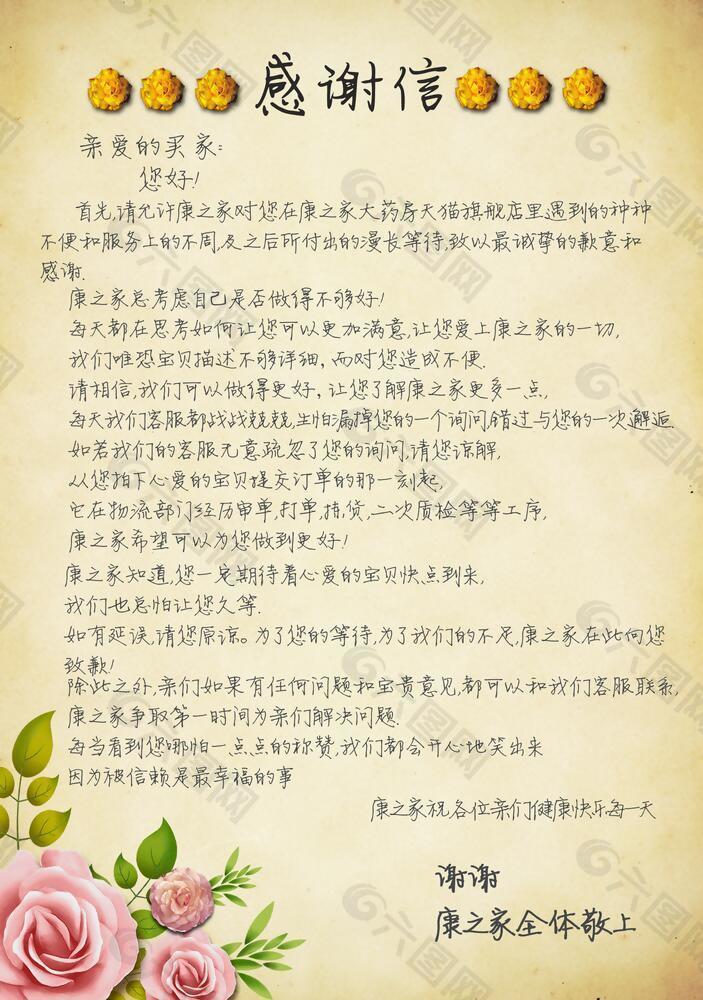 感谢信
亲爱的买家:
您好!
首先,请允许康之家对您在康之家大药房天猫旗舰店里遇到的种种
不便和服务上的不周,及之后所付出的漫长等待,致以最诚挚的歉意和
感谢.
康之家总考虑自己是否做得不够好!
每天都在思考如何让您可以更加满意,让您爱上康之家的一切,
我们唯恐宝贝描述不够详细,而对您造成不便.
请相信,我们可以做得更好,让您了解康之家更多一点,
每天我们客服都战战兢兢,生怕漏掉您的一个询问,错过与您的一次邂逅.
如若我们的客服无意疏忽了您的询问,请您谅解,
从您拍下心爱的宝贝提交订单的那一刻起,
它在物流部门经历审单,打单,捂,货,二次质检等等工序,
康之家希望可以为您做到更好!
康之家知道,您一定期待着心爱的宝贝快点到来,
我们也总怕让您久等.
如有延误,请您原谅。为了您的等待,为了我们的不足,康之家在此向您
致歉!
除此之外,亲们如果有任何问题和宝贵意见,都可以和我们客服联系,
康之家争取第一时间为亲们解决问题.
每当看到您哪怕一点点的称赞,我们都会开心地笑出来
因为被信赖是最幸福的事
康之家祝各位亲们健康快乐每一天
谢谢
康之家全体敬上
六图网